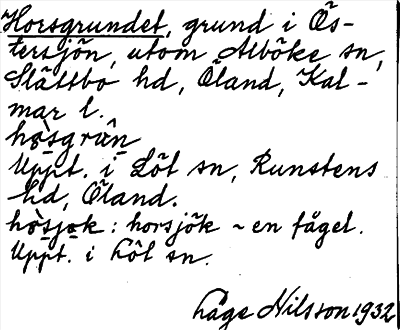 Horsgrundet, grund i Ös-
tersjön, utom Alböke sn,
Slättbo hd, Öland, Kal-
mar l.
hòsgrùn
Uppt. i Löt sn, Runstens
hd, Öland.
hòsjøk: horsjök ~ en fågel.
Uppt. i Löt sn.
Låge Nilsson 1932